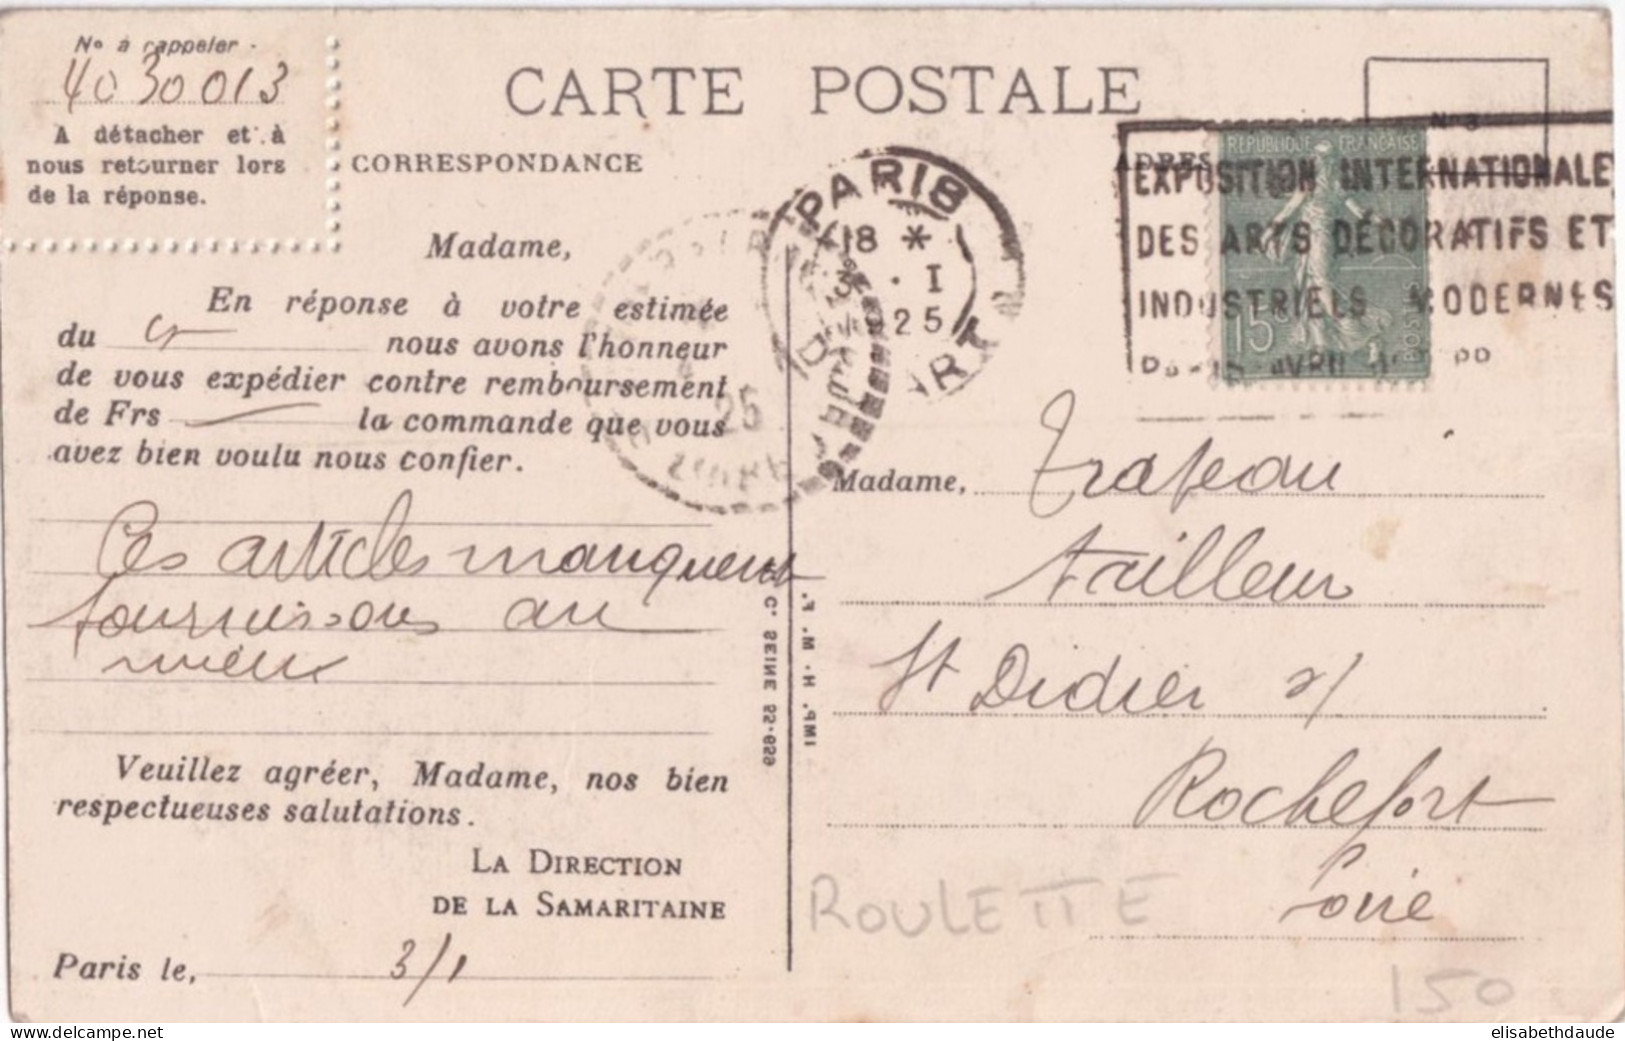 No à rappeler
4030013
A détacher et à
nous retourner lors
de la réponse.
CARTE POSTALE
CORRESPONDANCE
No 3
PARIS
18 *
3 . I
25
DÉPART
EXPOSITION INTERNATIONALE
DES ARTS DÉCORATIFS ET
INDUSTRIELS MODERNES
RÉPUBLIQUE FRANÇAISE
15c
POSTES
25
LOIRE
Madame,
En réponse à votre estimée
du nous avons l'honneur
de vous expédier contre remboursement
de Frs la commande que vous
avez bien voulu nous confier.
Ces articles manquent
fournissons au
mieux
Veuillez agréer, Madame, nos bien
respectueuses salutations.
LA DIRECTION
DE LA SAMARITAINE
Paris le, 3/1
IMP. H. M. F.
Cr SEINE 22-929
Madame, Trapeau
tailleur
St Didier s/
Rochefort
Loire
ROULETTE
150
www.delcampe.net
elisabethdaude